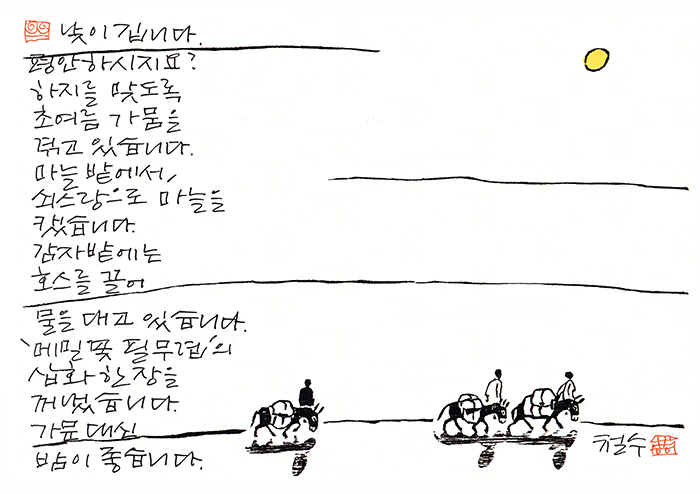 낮이 깁니다.
평안하시지요?
하지를 맞도록
초여름 가뭄을
겪고 있습니다.
마늘밭에서,
쇠스랑으로 마늘을
캤습니다.
감자밭에는
호스를 끌어
물을 대고 있습니다.
'메밀꽃 필 무렵'의
삽화 한 장을
꺼냈습니다.
가뭄 대신
밤이 좋습니다.
철수